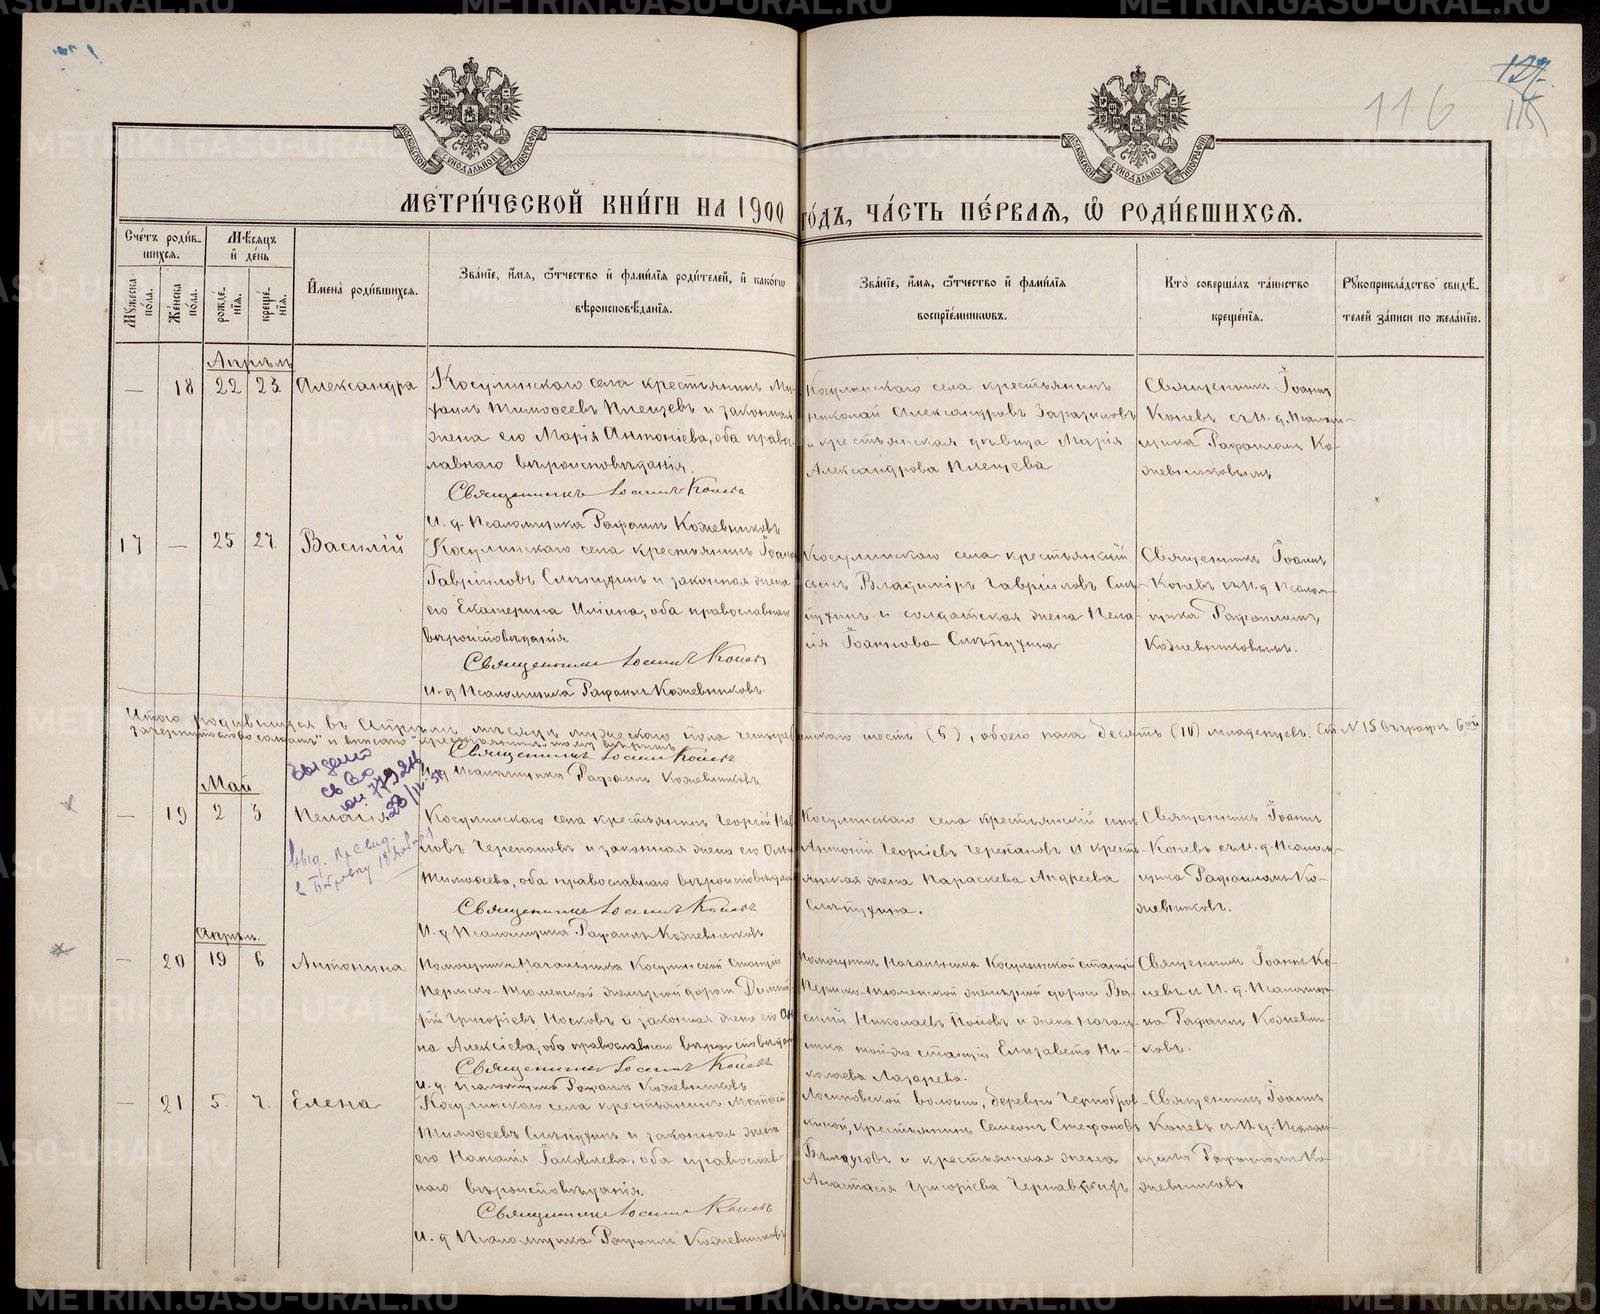 127.
116
115
МЕТРИ́ЧЕСКОЙ КНИ́ГИ НА 1900 ГО́ДЪ, ЧА́СТЬ ПЕ́РВАЯ, Ѽ РОДИ́ВШИХСЯ.
Сче́тъ роди́в-
шихся.
Мѣ́сяцъ
и҆ де́нь
Мꙋ́жеска
по́ла.
Же́нска
по́ла.
рожде́-
нїя.
креще́-
нїя.
И҆мена̀ роди́вшихся.
Зва́нїе, и҆́мя, ѻ҆́тчество и҆ фами́лїя роди́телей, и҆ како́гѡ
вѣроисповѣ́данїя.
Зва́нїе, и҆́мя, ѻ҆́тчество и҆ фами́лїя
воспрїе́мникѡвъ.
Кто̀ соверша́лъ та́инство
креще́нїя.
Рꙋкоприкла́дство свидѣ́-
телей за́писи по жела́нїю.
Апрѣль
— 18 22 23 Александра
Косулинскаго села крестьянинъ Ми-
хаилъ Тимоѳеевъ Плещевъ и законная
жена его Марія Антоніева, оба право-
славнаго вѣроисповѣданія.
Священникъ Іоаннъ Коневъ
И. д. Псаломщика Рафаилъ Кожевниковъ
Косулинскаго села крестьянинъ
Николай Александровъ
и крестьянская дѣвица Марія
Александрова Плещева
Священникъ Іоаннъ
Коневъ съ И. д. Псалом-
щика Рафаиломъ Ко-
жевниковымъ
17 — 25 27. Василій
Косулинскаго села крестьянинъ Іоаннъ
Гавріиловъ Слѣпухинъ и законная жена
его Екатерина Иліина, оба православнаго
вѣроисповѣданія
Священникъ Іоаннъ Коневъ
И. д Псаломщика Рафаилъ Кожевниковъ.
Косулинскаго села крестьянскій
сынъ Владиміръ Гавріиловъ Слѣ-
пухинъ и солдатская жена Пела-
гія Іоаннова Слѣпухина
Священникъ Іоаннъ
Коневъ съ И. д Псалом-
щика Рафаиломъ
Кожевниковымъ.
Итого родившихся въ Апрѣлѣ мѣсяцѣ мужескаго пола четыре женскаго шесть (6), обоего пола десять (10) младенцевъ. Ст № 15 въ графѣ 6ой
зачеркнуто слово и вписано крестьянинъ тому вѣрить
Священникъ Іоаннъ Коневъ
И. д Псаломщика Рафаилъ Кожевниковъ
Май
— 19 2 3 Пелагія
Косулинскаго села крестьянинъ Георгій
Черепановъ и законная жена его
Тимоѳеева, оба православнаго вѣроисповѣданія
Священникъ Іоаннъ Коневъ
И. д Псаломщика Рафаилъ Кожевниковъ
Косулинскаго села крестьянскій сынъ
Антоній Георгіевъ Черепановъ и кресть-
янская жена Параскева Андреева
Слѣпухина.
Священникъ Іоаннъ
Коневъ съ И. д. Псалом-
щика Рафаиломъ Ко-
жевниковъ.
Апрѣль.
— 20 19 6 Антонина
Помощникъ Начальника Косулинской станціи
Пермско-Тюменской желѣзной дороги Димит-
рій Григоріевъ Носковъ и законная жена его Ан-
на Алексіева, оба православнаго вѣроисповѣданія
Священникъ Іоаннъ Коневъ
И. д. Псаломщика Рафаилъ Кожевниковъ
Помощникъ Начальника Косулинской станціи
Пермско-Тюменской желѣзной дороги Ва-
силій Николаевъ Поповъ и жена Началь-
ника той-же станціи Елизавета Ни-
колаева Лазарева.
Священникъ Іоаннъ Ко-
невъ и И. д. Псаломщи-
ка Рафаилъ Кожевни-
ковъ.
— 21 5. 7. Елена
Косулинскаго села крестьянинъ Матѳей
Тимоѳеевъ Слѣпухинъ и законная жена
его Наталія Іаковлева, оба православ-
наго вѣроисповѣданія.
Священникъ Іоаннъ Коневъ
И. д Псаломщика Рафаилъ Кожевниковъ
волости, деревни
крестьянинъ Семеонъ Стефановъ
и крестьянская жена
Анастасія Григоріева
Священникъ Іоаннъ
Коневъ съ И. д. Псалом-
щика Рафаиломъ Ко-
жевниковъ
METRIKI.GASO-URAL.RU